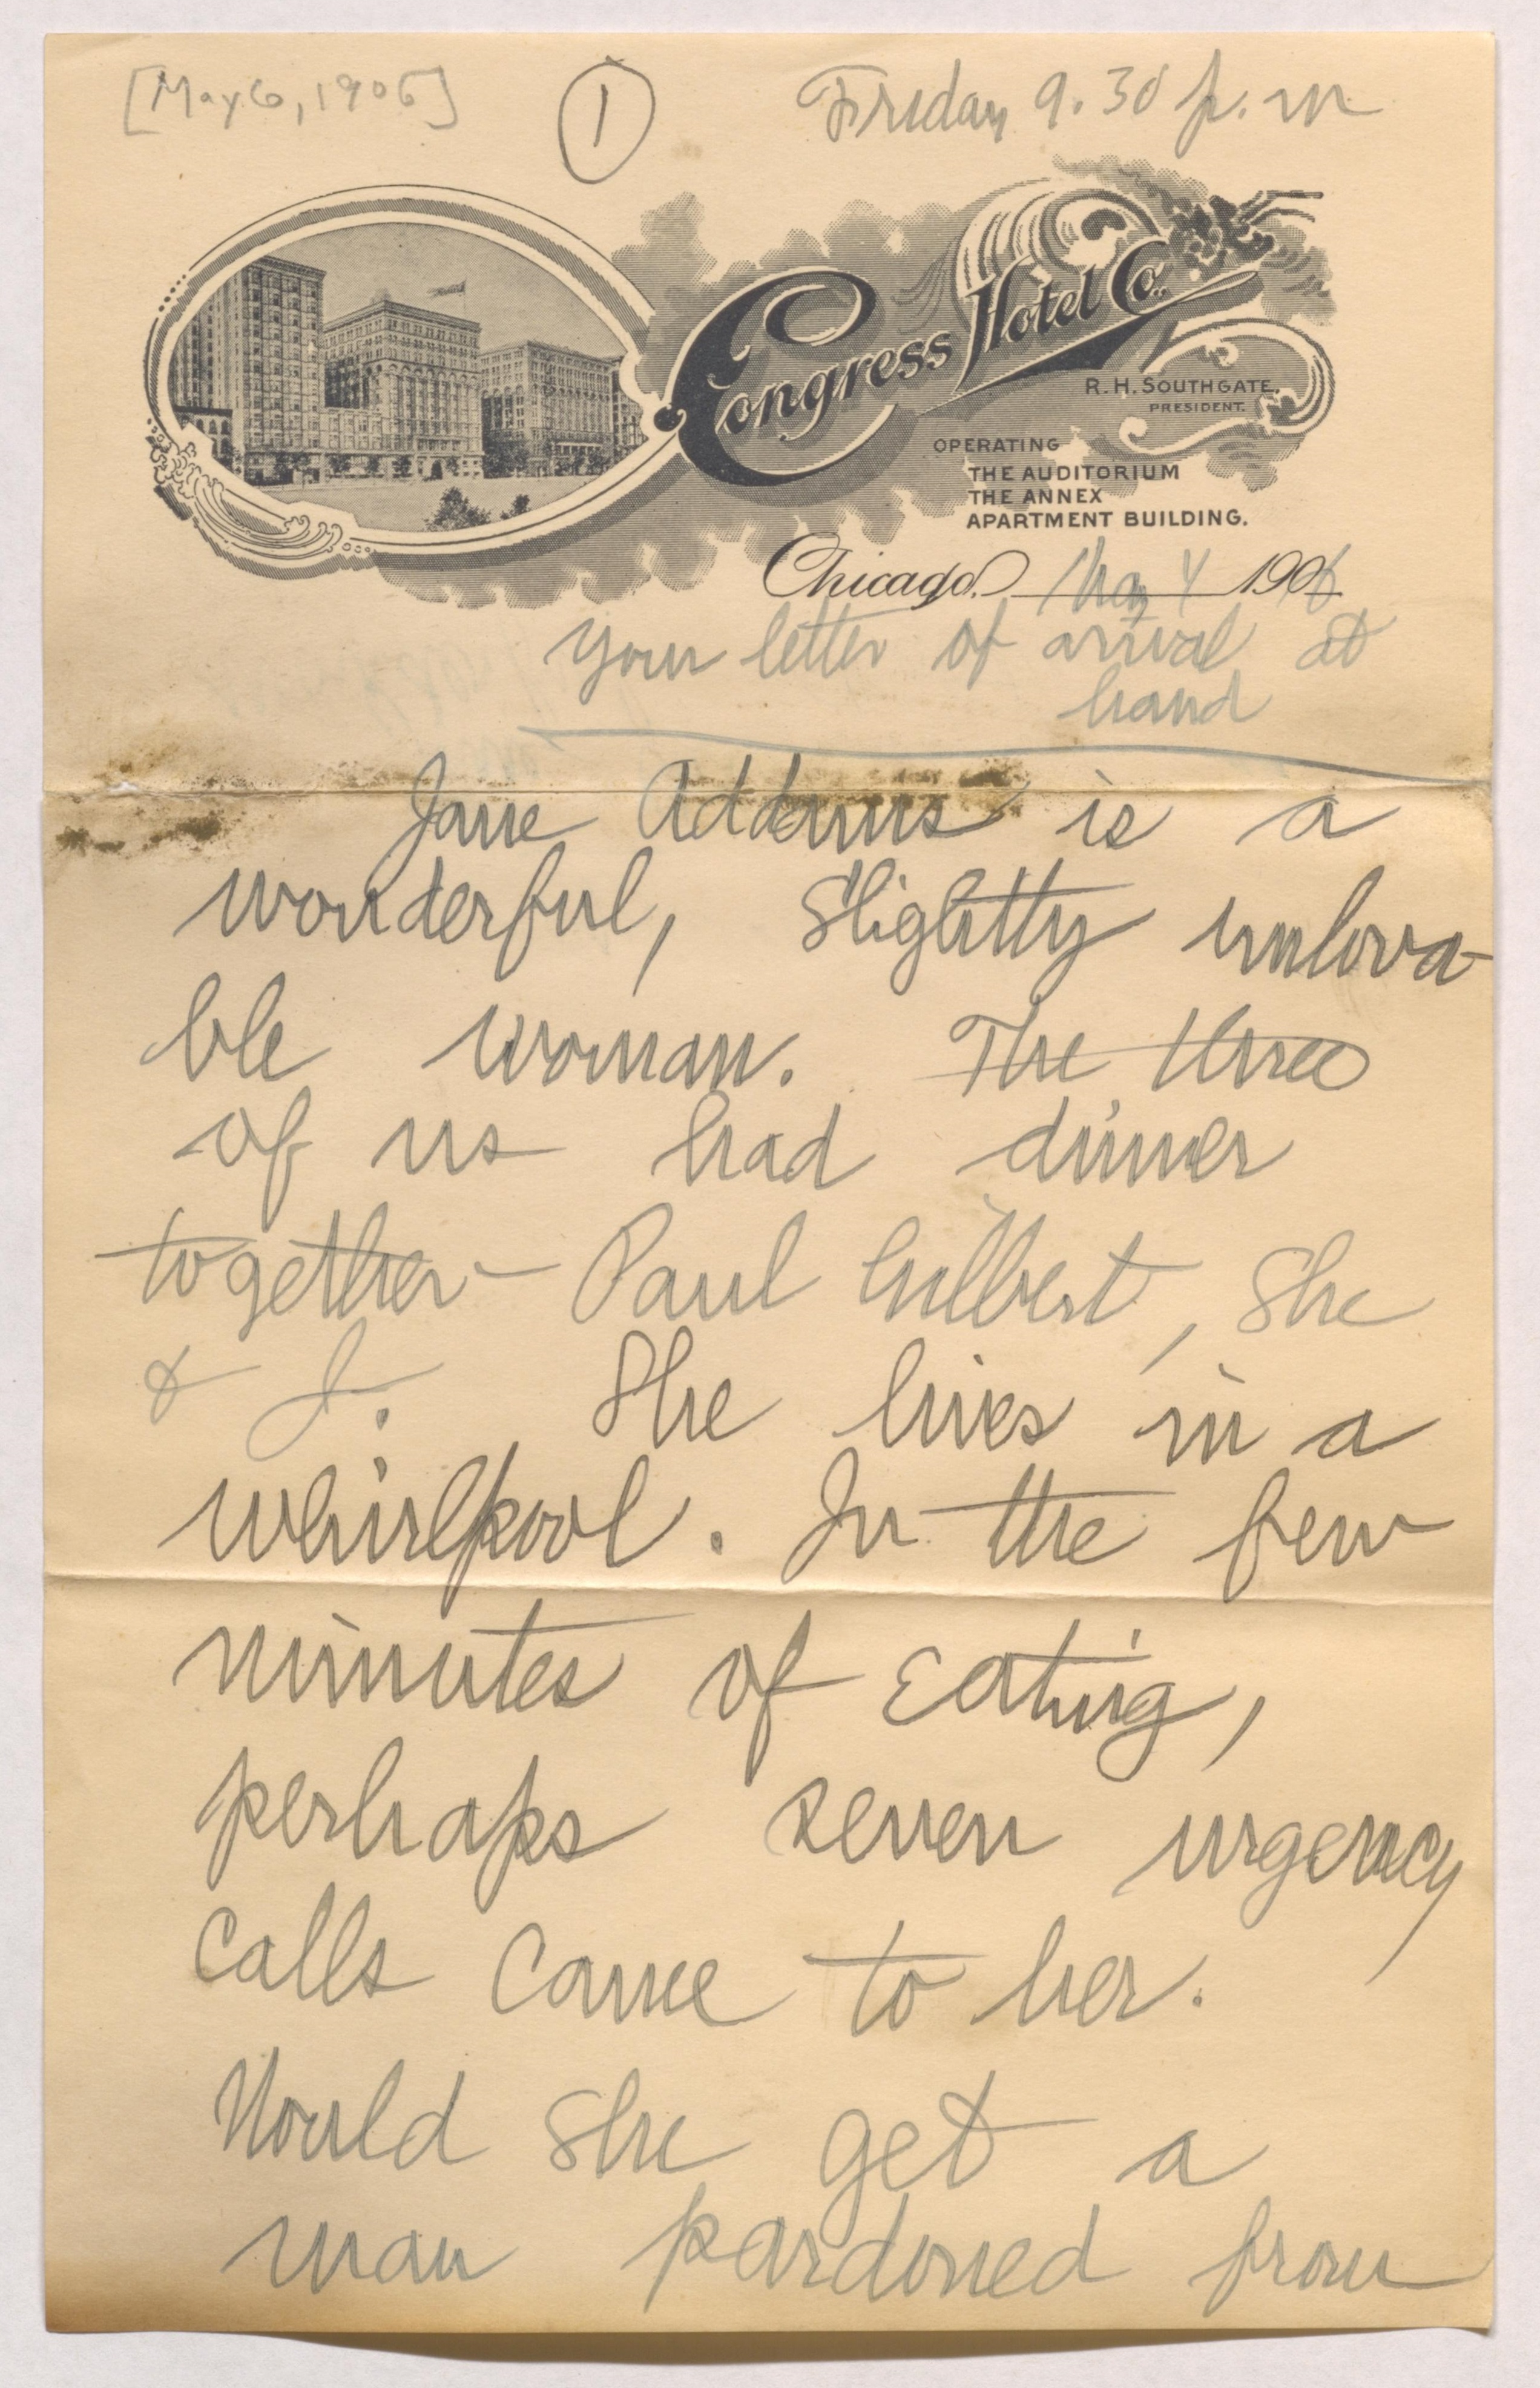 [May 6, 1906]
1
Friday 9.30 p.m
Congress Hotel Co.
R. H. SOUTHGATE,
PRESIDENT.
OPERATING
THE AUDITORIUM
THE ANNEX
APARTMENT BUILDING.
Chicago. May 4 1906
Your letter of arrival at
hand
Jane Addams is a
wonderful, slightly unlova-
ble woman. The three
of us had dinner
together - Paul Gilbert, she
& I. She lives in a
whirlpool. In the few
minutes of eating,
perhaps seven urgency
calls came to her.
Would she get a
man pardoned from